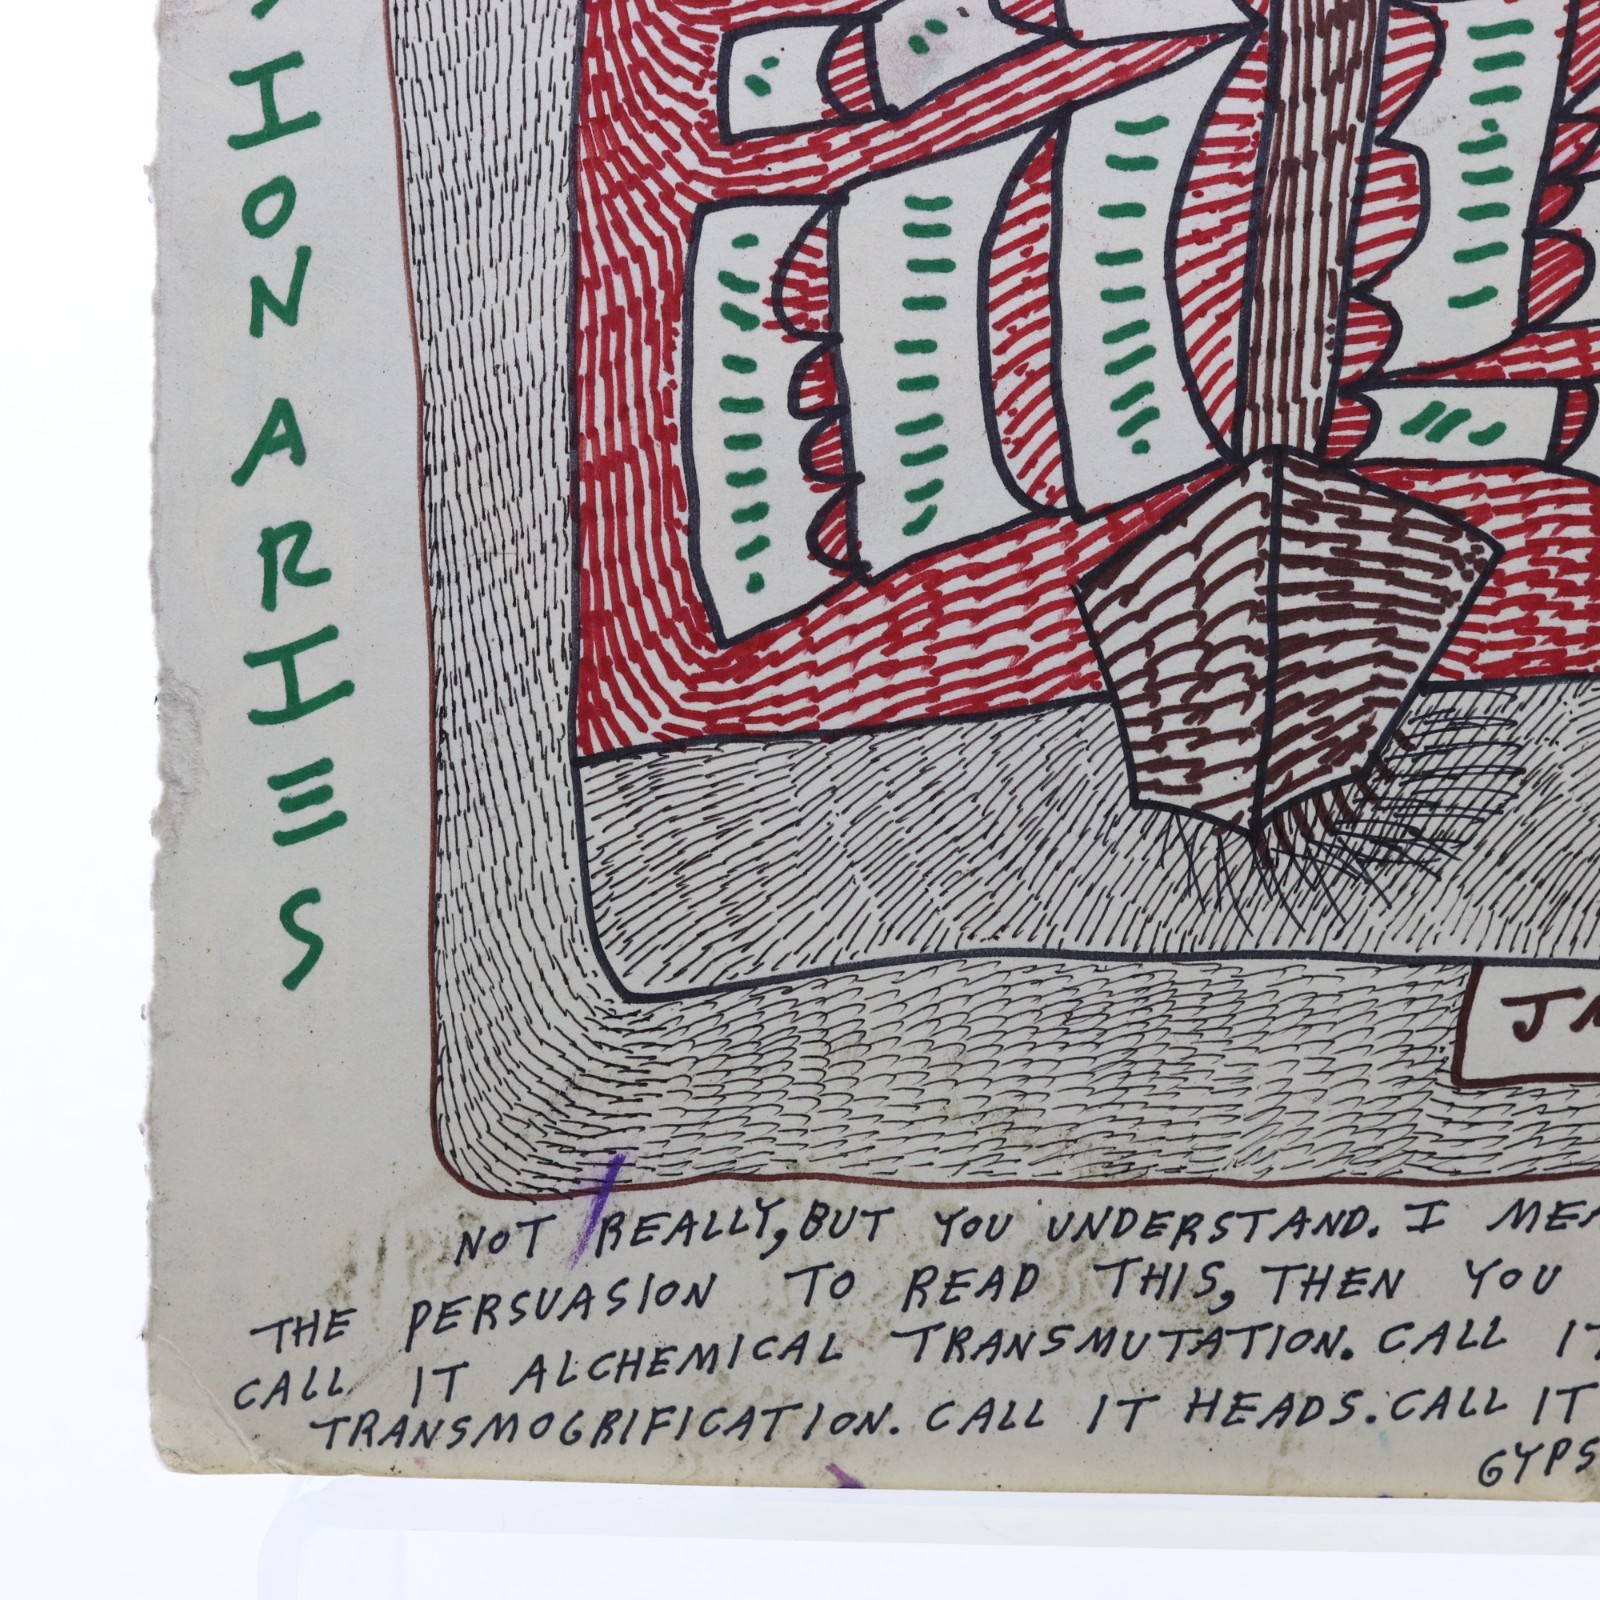 IONARIES
JN
NOT REALLY, BUT YOU UNDERSTAND. I MEA
THE PERSUASION TO READ THIS, THEN YOU
CALL IT ALCHEMICAL TRANSMUTATION. CALL IT
TRANSMOGRIFICATION. CALL IT HEADS. CALL IT
GYPS